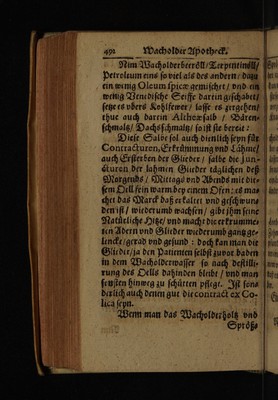 492 Wacholder Apotheck.
Nim Wacholderbeeröll / Terpentinöll /
Petroleum eins so viel als des andern / dazu
ein wenig Oleum spicæ gemischet / und ein
wenig Venedische Seiffe darein geschabet /
setze es übers Kohlfewer / lasse es zergehen /
thue auch darein Altheesalb / Bären-
schmaltz / Dachsschmaltz / so ist sie bereit:
Diese Salbe sol auch dienlich seyn für
Contracturen, Erkrümmung und Lähme /
auch Ersterben der Glieder / salbe die jun-
cturen der lahmen Glieder täglichen deß
Morgends / Mittags und Abends mit die-
sem Oell fein warm bey einem Ofen: es ma-
chet das Marck daß erkaltet und geschwun-
den ist / wiederumb wachsen / gibt ihm seine
Natürliche Hitze / und macht die erkrümme-
ten Adern und Glieder wiederumb gantz ge-
lencke / gerad und gesund: doch kan man die
Glieder / ja den Patienten selbst zuvor baden
in dem Wacholderwasser so nach destilli-
rung des Oells dahinden bleibt / und man
sonsten hinweg zu schütten pflegt. Ist son-
derlich auch denen gut die contract ex Co-
lica seyn.
Wenn man das Wacholderholtz und
Sprößz